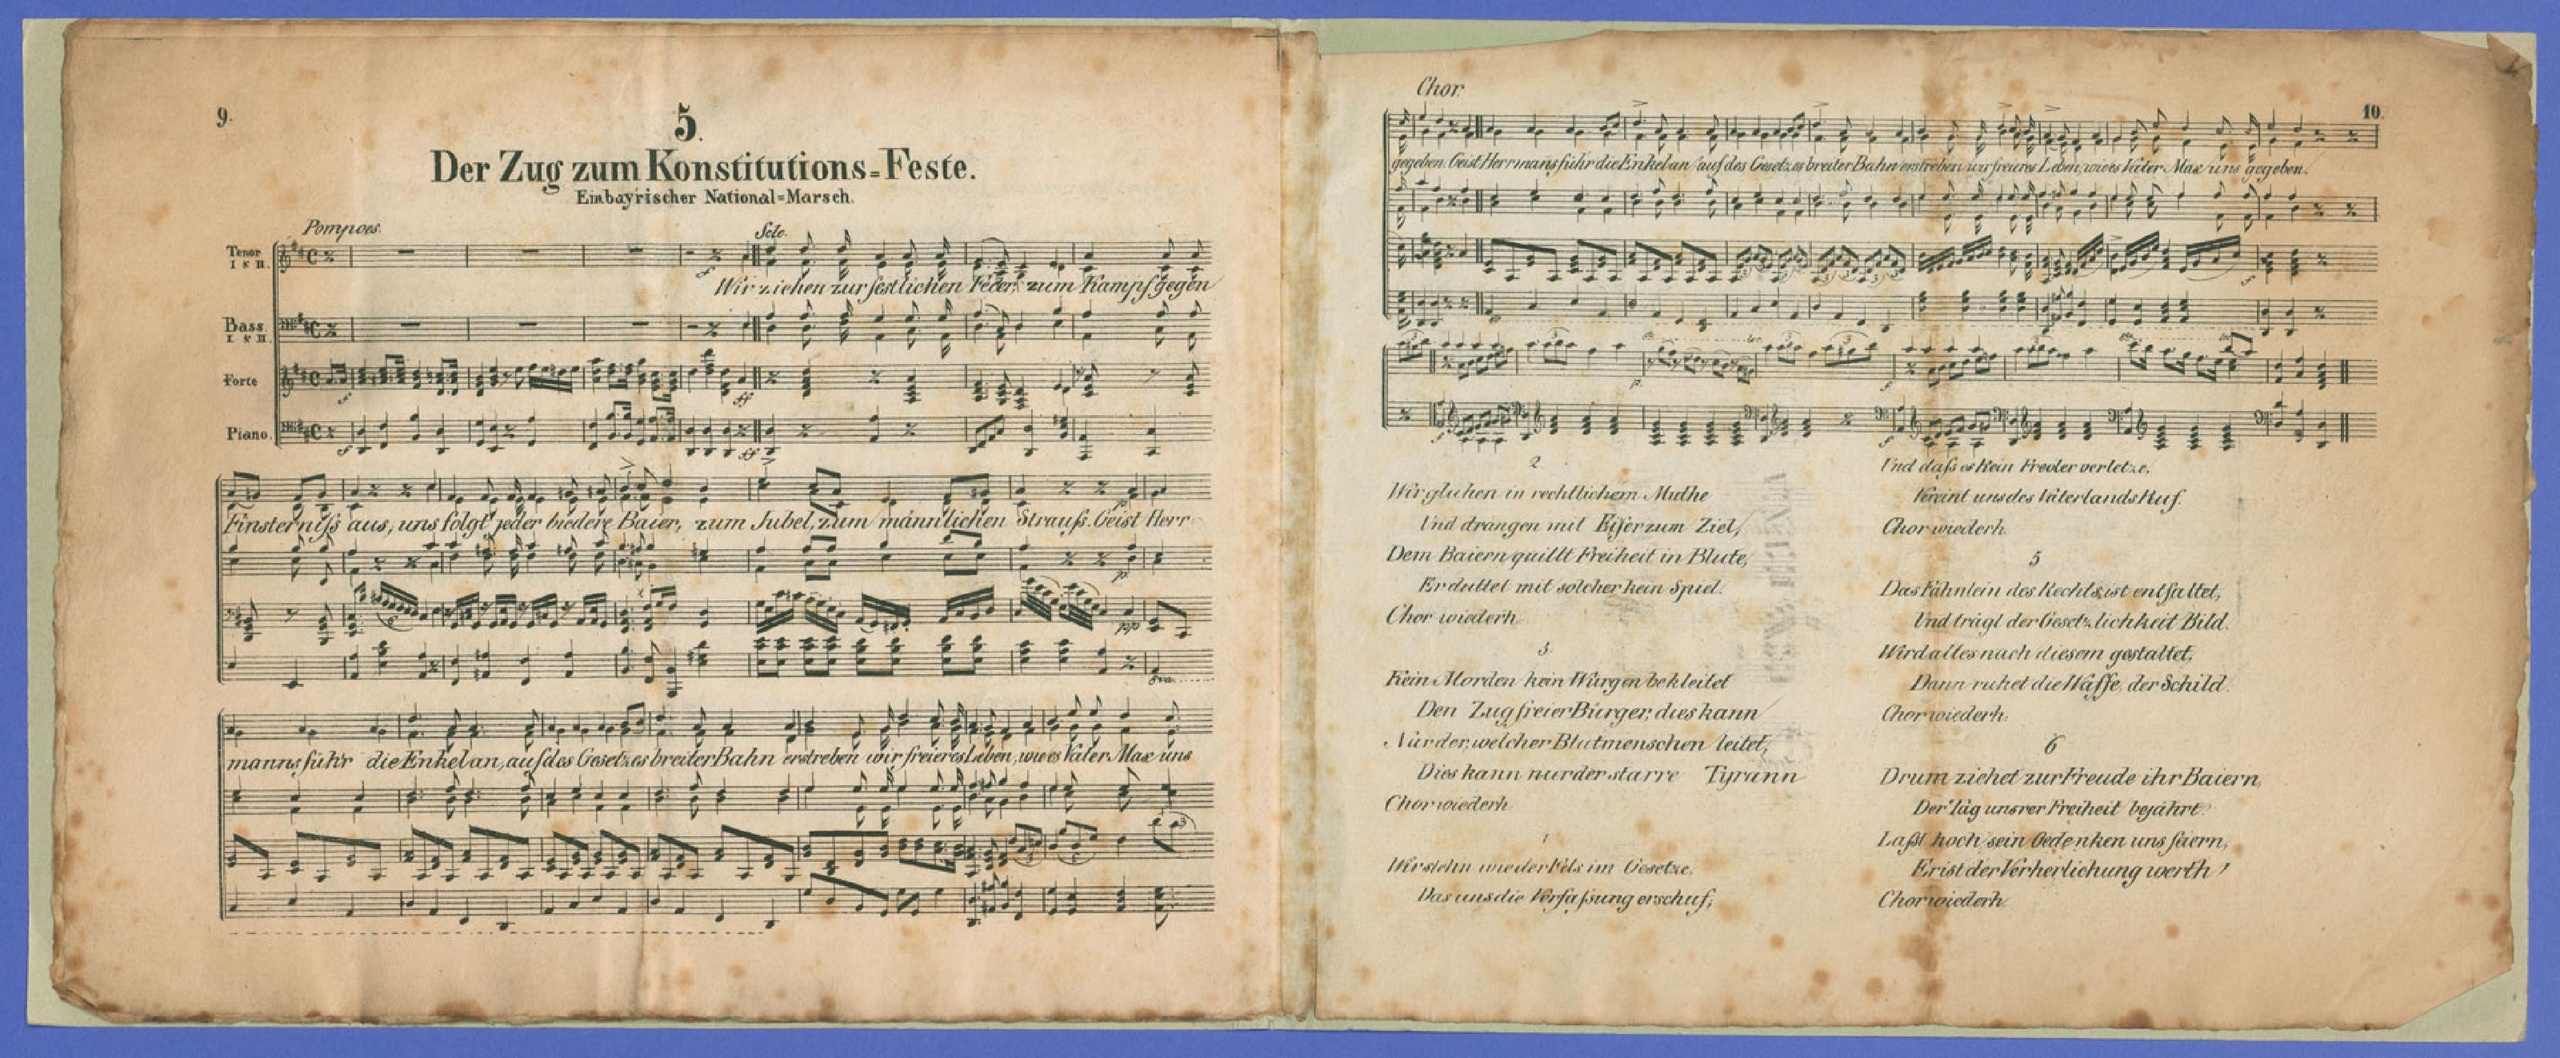 9.
5.
Der Zug zum Konstitutions=Feste.
Ein bayrischer National=Marsch.
Pompoes.
Tenor
I & II.
Solo.
Wir ziehen zur festlichen Feier, zum Kampf gegen
Bass.
I & II.
Forte
Piano.
Finsterniſs aus, uns folgt jeder biedere Baier, zum Jubel, zum männlichen Strauſs. Geist Herr-
manns führ die Enkel an, auf des Gesetzes breiter Bahn erstreben wir freieres Leben, wie es Vater Max uns
10.
Chor.
gegeben. Geist Herrmans führ die Enkel an auf des Gesetzes breiter Bahn erstreben wir freieres Leben, wie es Vater Max uns gegeben.
2
Wir glühen in rechtlichem Muthe
Und drängen mit Eifer zum Ziel,
Dem Baiern quillt Freiheit in Blute,
Er duldet mit solcher kein Spiel.
Chor wiederh
3.
Kein Morden kein Würgen bekleitet
Den Zug freier Bürger, dies kann
Nur der, welcher Blutmenschen leitet,
Dies kann nur der starre Tyrann
Chor wiederh
Wir stehn wie der Fels im Gesetze.
Das uns die Verfaſsung erschuf,
Und daſs es kein Frevler verletze,
Vereint uns des Vaterlands Ruf.
Chor wiederh.
5
Das Fähnlein des Rechts ist entfaltet,
Und trägt der Gesetzlichkeit Bild.
Wird alles nach diesem gestaltet,
Dann ruhet die Waffe, der Schild.
Chor wiederh.
6
Drum ziehet zur Freude ihr Baiern,
Der Tag unsrer Freiheit bejährt
Laſst hoch sein Gedenken uns faiern,
Er ist der Verherlichung werth!
Chor wiederh.